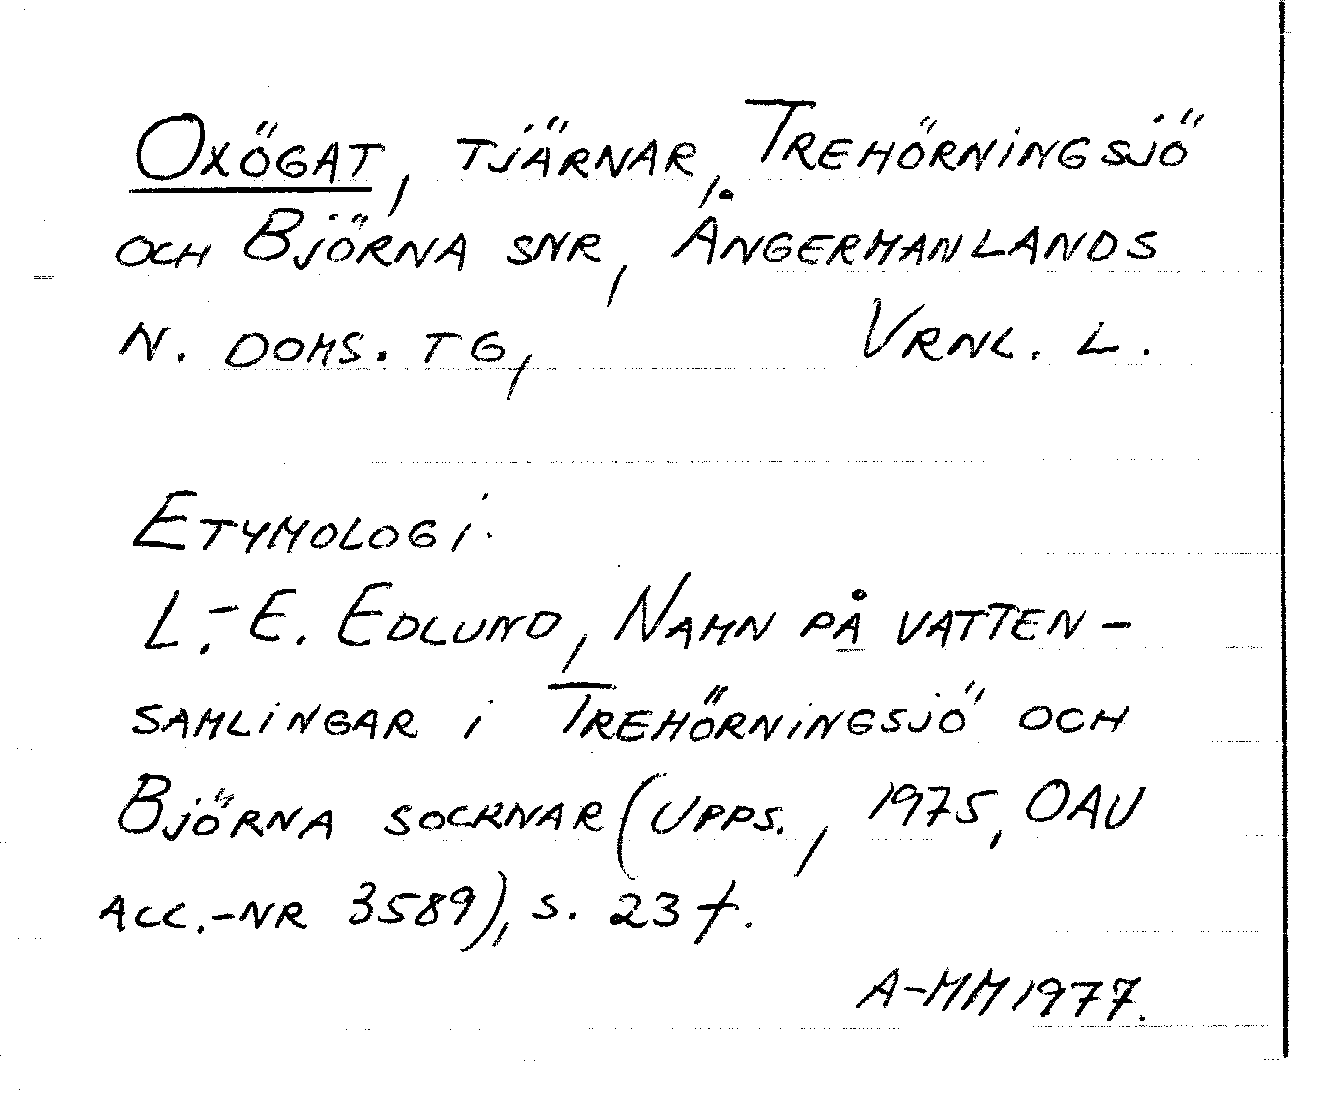 Oxögat, tjärnar, Trehörningsjö
och Björna snr, Ångermanlands
N. doms. tg, Vrnl. L.
Etymologi:
L.-E. Edlund, Namn på vatten-
samlingar i Trehörningsjö och
Björna socknar (Upps., 1975, OAU
acc.-nr 3589), s. 23 f.
A-MM 1977.